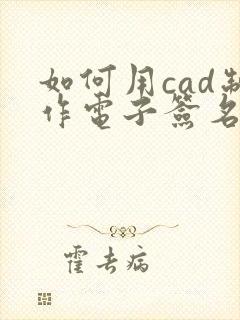 如何用cad制
作電子簽名
霍去病